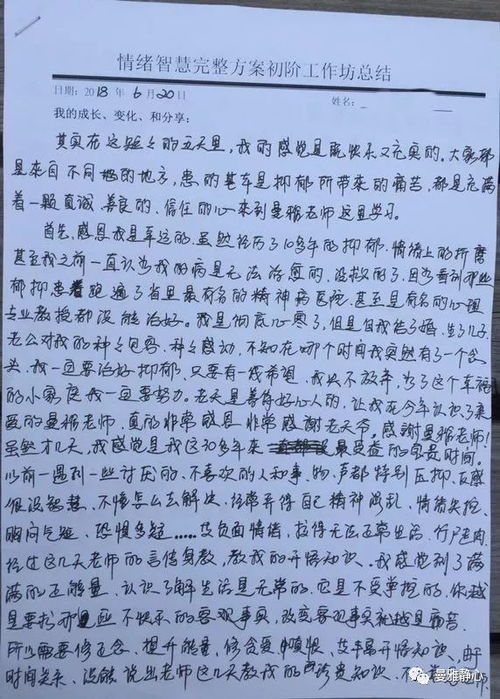 情绪智慧完整方案初阶工作坊总结
日期: 2018 年 6 月20日 姓名:
我的成长、变化、和分享:
其实在这短短的五天里,我的感觉是既快乐又充实的。大家都
是来自不同地的地方,患的基本是抑郁所带来的痛苦,都是充满
着一颗真诚善良的、信任的心来到曼雅老师这里学习。
首先,感恩我是幸运的,虽然经历了10多年的抑郁,情绪上的折磨
甚至我之前一直认为我的病是无法治愈的,没救的了,因为看到那些
郁抑患者跑遍了省里最有名的精神病医院,甚至是有名的心理
专业教授都没能治好。我是彻底心寒了,但是自我结了婚,生了儿子
老公对我的种种包容,种种感动,不知在哪个时间我突然有了一个念
头,我一定要治好抑郁,只要有一线希望,我决不放弃,为了这个幸福
的小家庭我一定要努力。老天是善待好心人的,让我在今年认识了亲
爱的曼雅老师,真的非常感恩,非常感谢老天爷。感谢曼雅老师!
虽然才几天,我感觉是我这30多年来最受益的宝贵时间。
以前一遇到一些讨厌的、不喜欢的人和事、物、声都特别压抑、反感
很没智慧,不懂怎么去解决,经常弄得自己精神混乱,情绪失控,
胸闷气短,恐惧多疑……等负面情绪,搞得无法正常生活,行尸走肉
经过这几天老师的言传身教,教我的开悟知识。我感觉到了满
满的正能量,认识了解生活是无常的,它是不受掌控的,你越
是要抗那些不快乐的客观事实,改变客观事实就越是痛苦。
所以需要修正念、提升能量,修贪爱、嗔恨、等等开悟知识,由于
时间关系,没能说出老师这几天教我的宝贵知识,不
曼雅静心